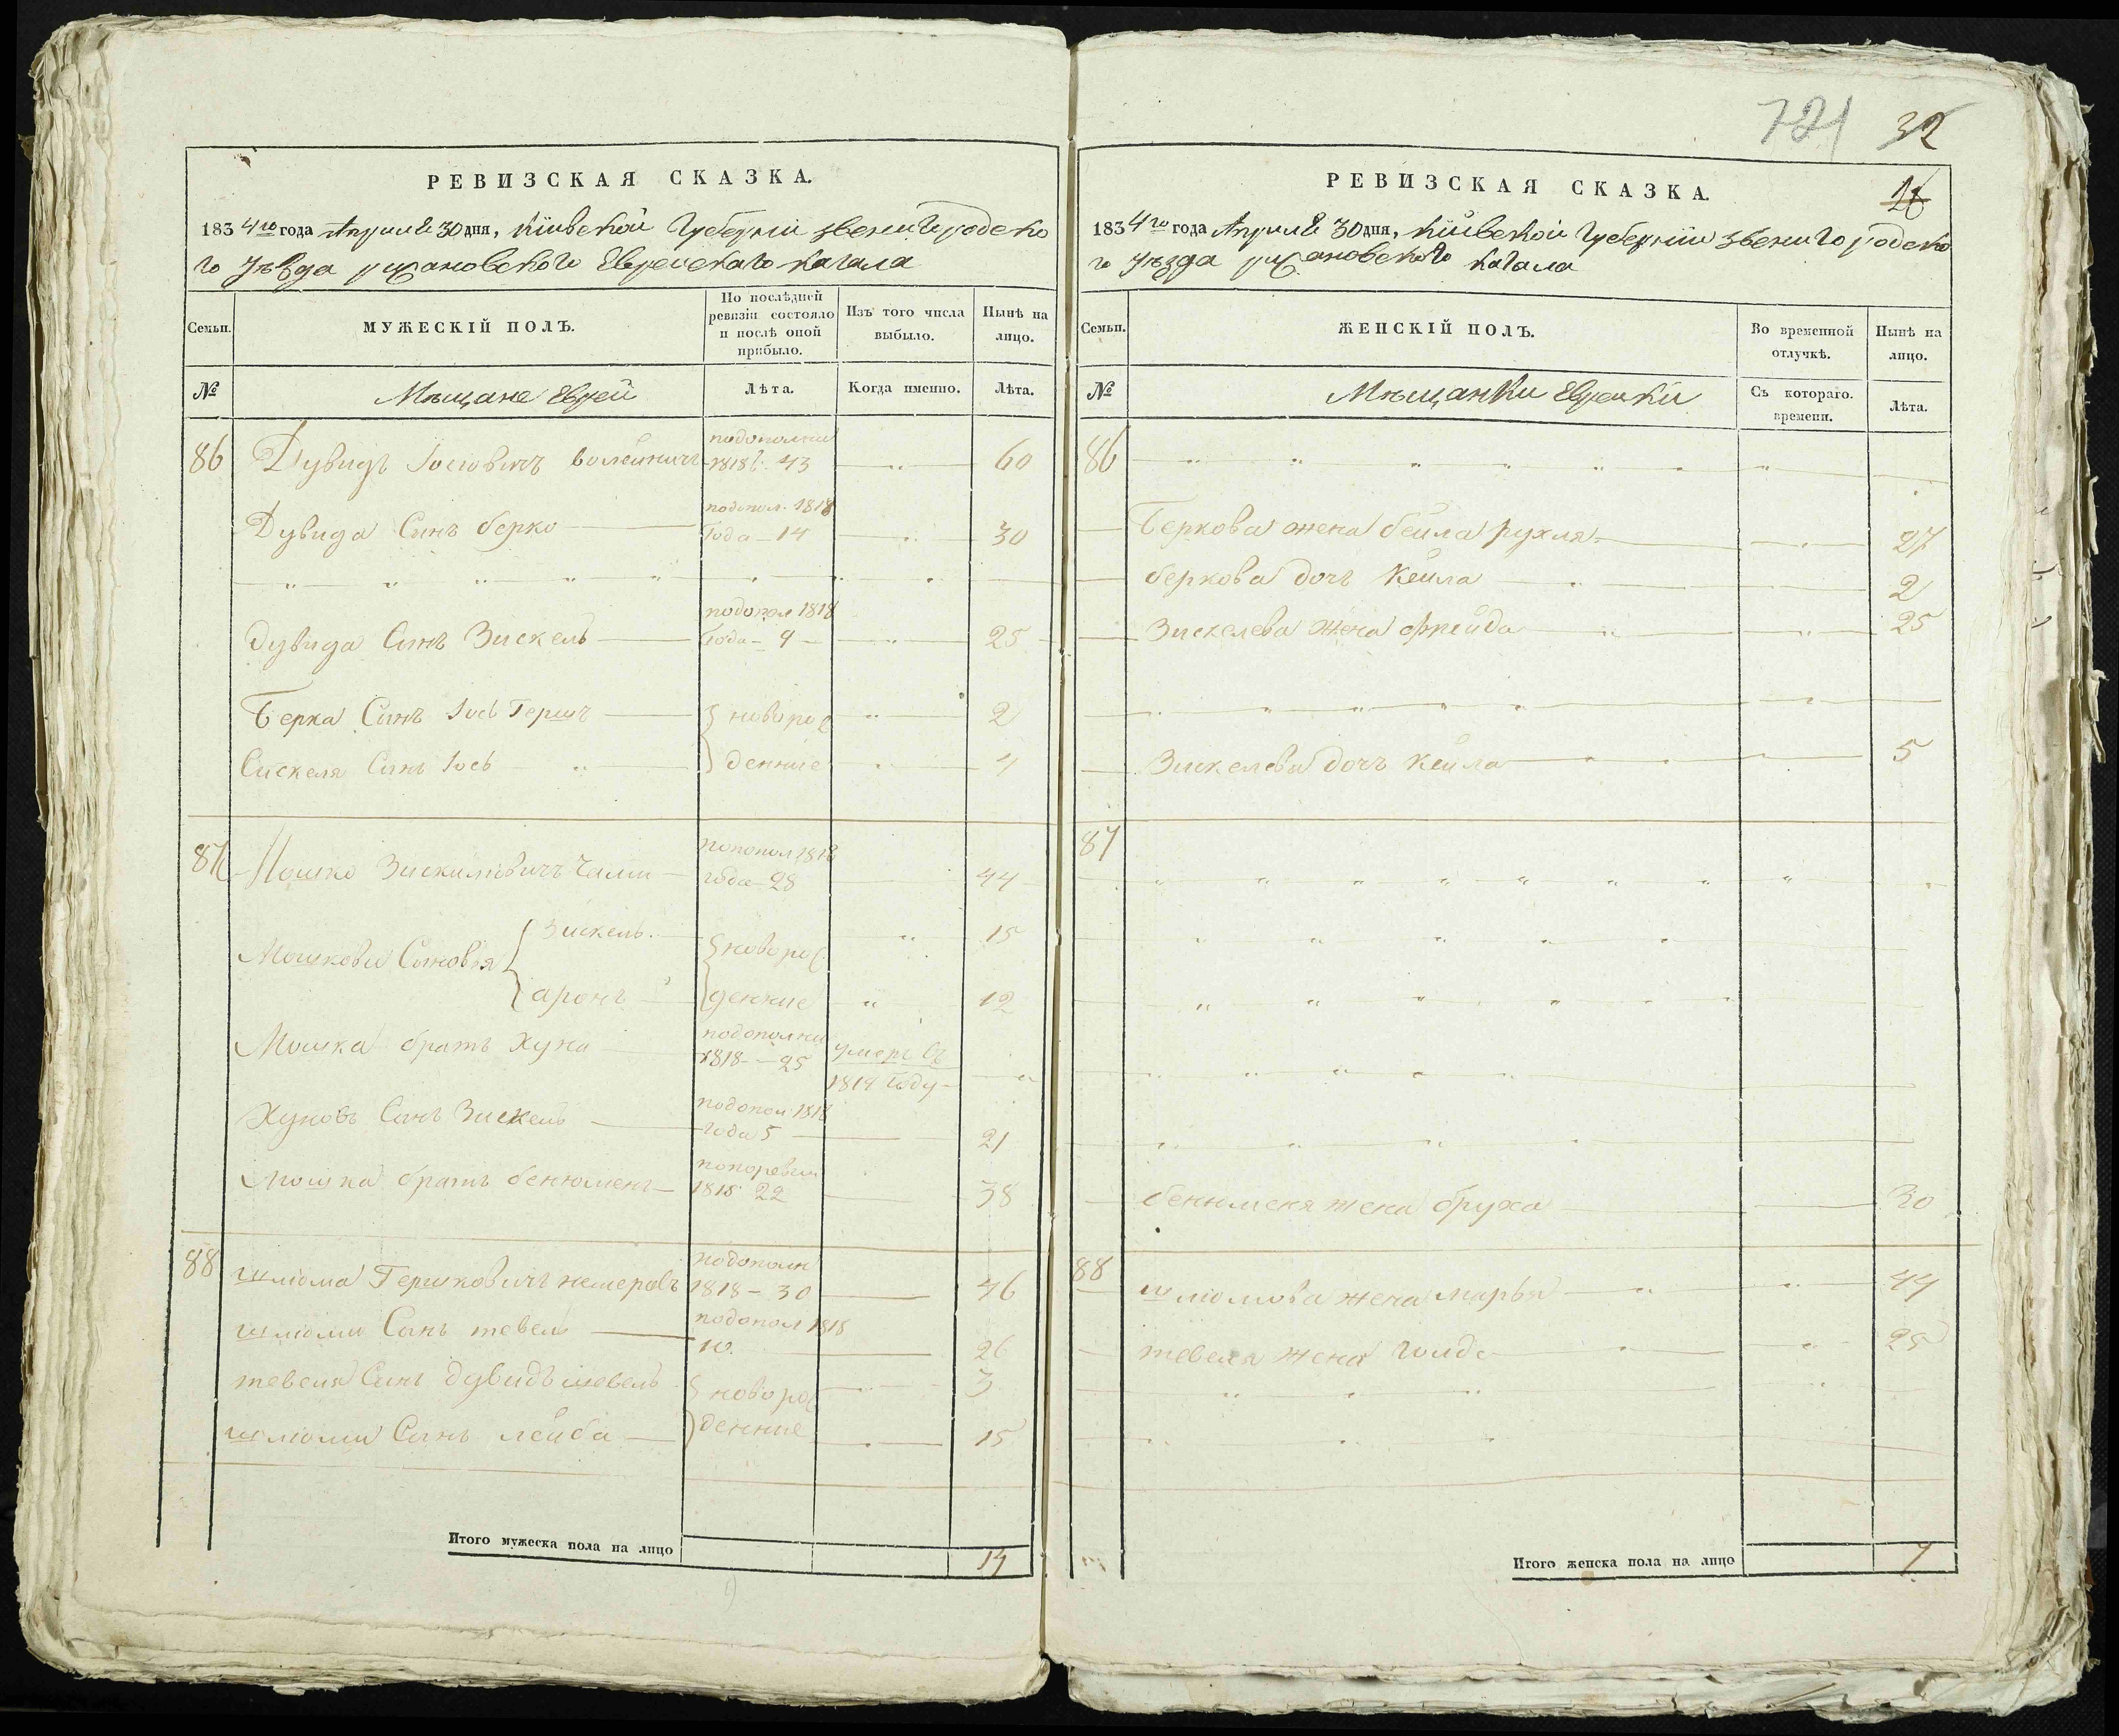 721 32
РЕВИЗСКАЯ СКАЗКА.
1834го года Апреля 30 дня, Кіивской Губерніи Звенигородско
го уѣзда рижановского Еврейскаго кагала
Семьи. МУЖЕСКІЙ ПОЛЪ. По послѣдней ревизіи состояло и послѣ оной прибыло. Изъ того числа выбыло. Нынѣ на лицо.
№ Мѣщане Евреи Лѣта. Когда именно. Лѣта.
86 Дувидъ Іосіовичъ подополни 1818 43 60
Дувида Синъ берко подопол. 1818 Года 14 30
Дувида Синъ Зискель подопол 1818 Года 9 25
Берка Синъ Іось Гершъ новорож 2
Сискеля Синъ Іось денние 4
87 Мошко Зискиліовичъ пополол 1818 года 28 44
Мошкови Синовья Зискель новорож 15
аронъ денние 12
Мошка братъ Хуна подополни 1818 25 умеръ въ 1819 Году
Хуновъ Синъ Зискель подопол 1818 года 5 21
Мошка братъ бенюменъ поноревизи 1818 22 38
88 шліома Гершковичъ немеровъ подополн 1818 30 46
шліоми Синъ тевель подопол 1818 10 26
тевеля Синъ дувидъ новорож 3
шліоми Синъ лейба денние 15
Итого мужеска пола на лицо 14
РЕВИЗСКАЯ СКАЗКА.
16
1834го года Апреля 30 дня, Кіивской Губерніи Звенигородско
го уѣзда рижановского кагала
Семьи. ЖЕНСКІЙ ПОЛЪ. Во временной отлучкѣ. Нынѣ на лицо.
№ Мѣщанки Еврейки Съ котораго. времени. Лѣта.
86
Беркова жена бейла рухля 27
беркова дочъ Кейла 2
Зискелева жена фрейда 25
Зискелева дочъ Кейла 5
87
бенюменя жена бруха 30
88 шліомова жена марья 44
тевеля жена голда 25
Итого женска пола на лицо 7